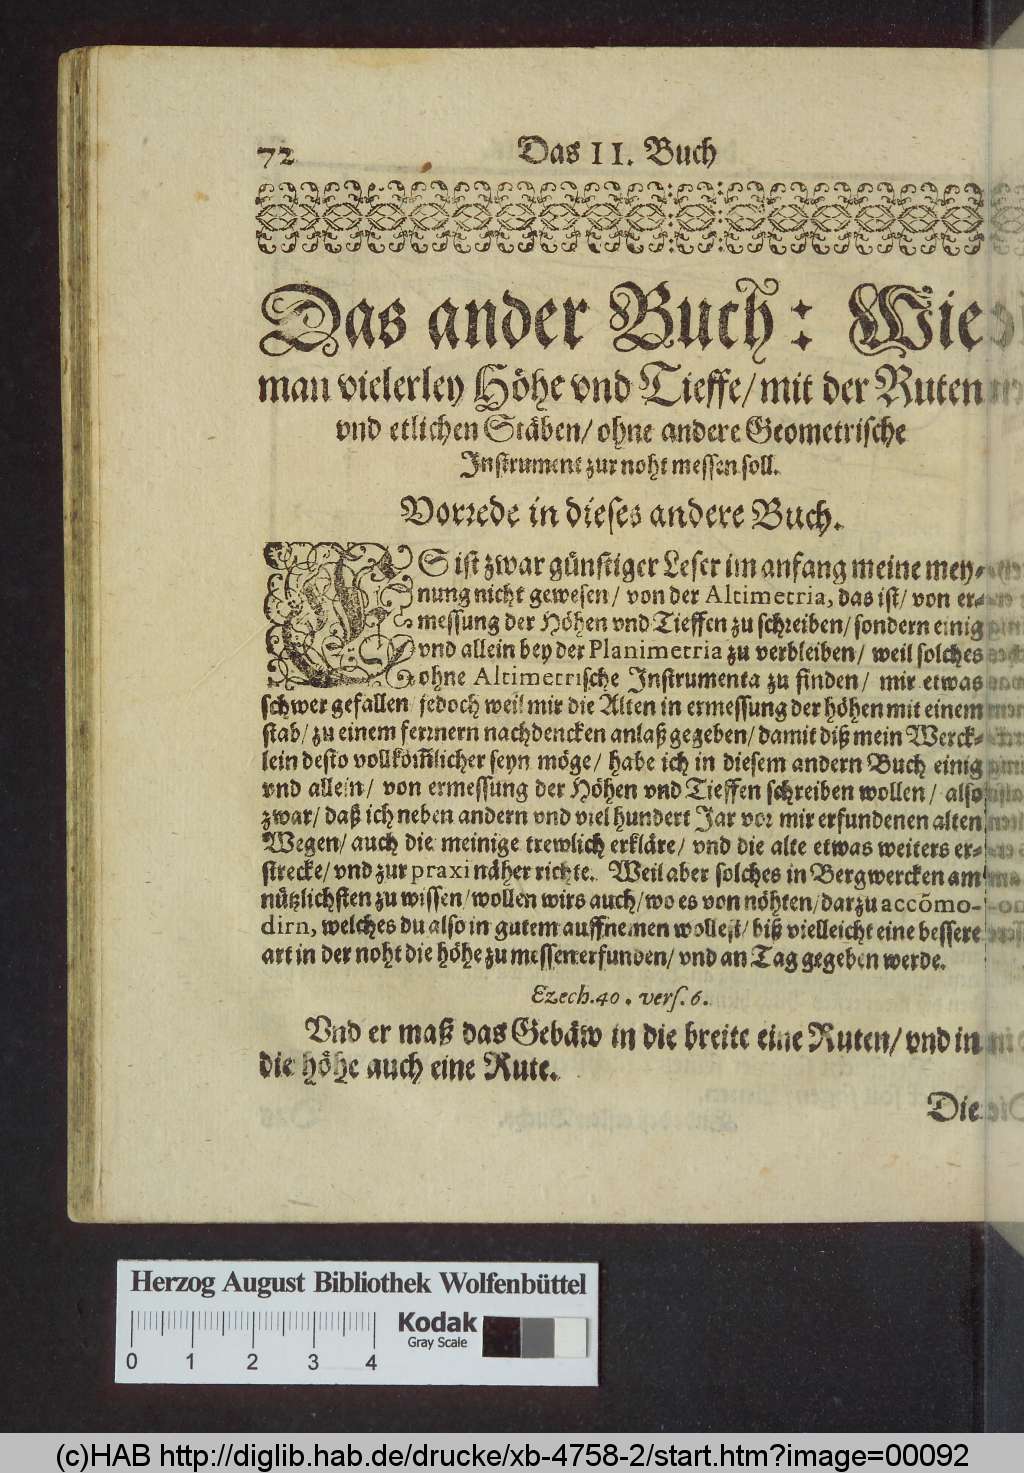 72 Das II. Buch
Das ander Buch: Wie
man vielerley Höhe vnd Tieffe/ mit der Ruten
vnd etlichen Stäben/ ohne andere Geometrische
Instrument zur noht messen soll.
Vorrede in dieses andere Buch.
ES ist zwar günstiger Leser im anfang meine mey-
nung nicht gewesen/ von der Altimetria, das ist/ von er-
messung der Höhen vnd Tieffen zu schreiben/ sondern einig
vnd allein bey der Planimetria zu verbleiben/ weil solches
ohne Altimetrische Instrumenta zu finden/ mir etwas
schwer gefallen/ jedoch weil mir die Alten in ermessung der höhen mit einem
stab/ zu einem ferrnern nachdencken anlaß gegeben/ damit diß mein Werck-
lein desto vollkom̃licher seyn möge/ habe ich in diesem andern Buch einig
vnd allein/ von ermessung der Höhen vnd Tieffen schreiben wollen/ also
zwar/ daß ich neben andern vnd viel hundert Jar vor mir erfundenen alten
Wegen/ auch die meinige trewlich erkläre/ vnd die alte etwas weiters er-
strecke/ vnd zur praxi näher richte. Weil aber solches in Bergwercken am
nützlichsten zu wissen/ wollen wirs auch/ wo es von nöhten/ darzu accõmo-
dirn, welches du also in gutem auffnemen wollest/ biß vielleicht eine bessere
art in der noht die höhe zu messen erfunden/ vnd an Tag gegeben werde.
Ezech. 40. vers. 6.
Vnd er maß das Gebäw in die breite eine Ruten/ vnd in
die höhe auch eine Rute.
Die
Herzog August Bibliothek Wolfenbüttel
0 1 2 3 4
Kodak
Gray Scale
(c)HAB http://diglib.hab.de/drucke/xb-4758-2/start.htm?image=00092